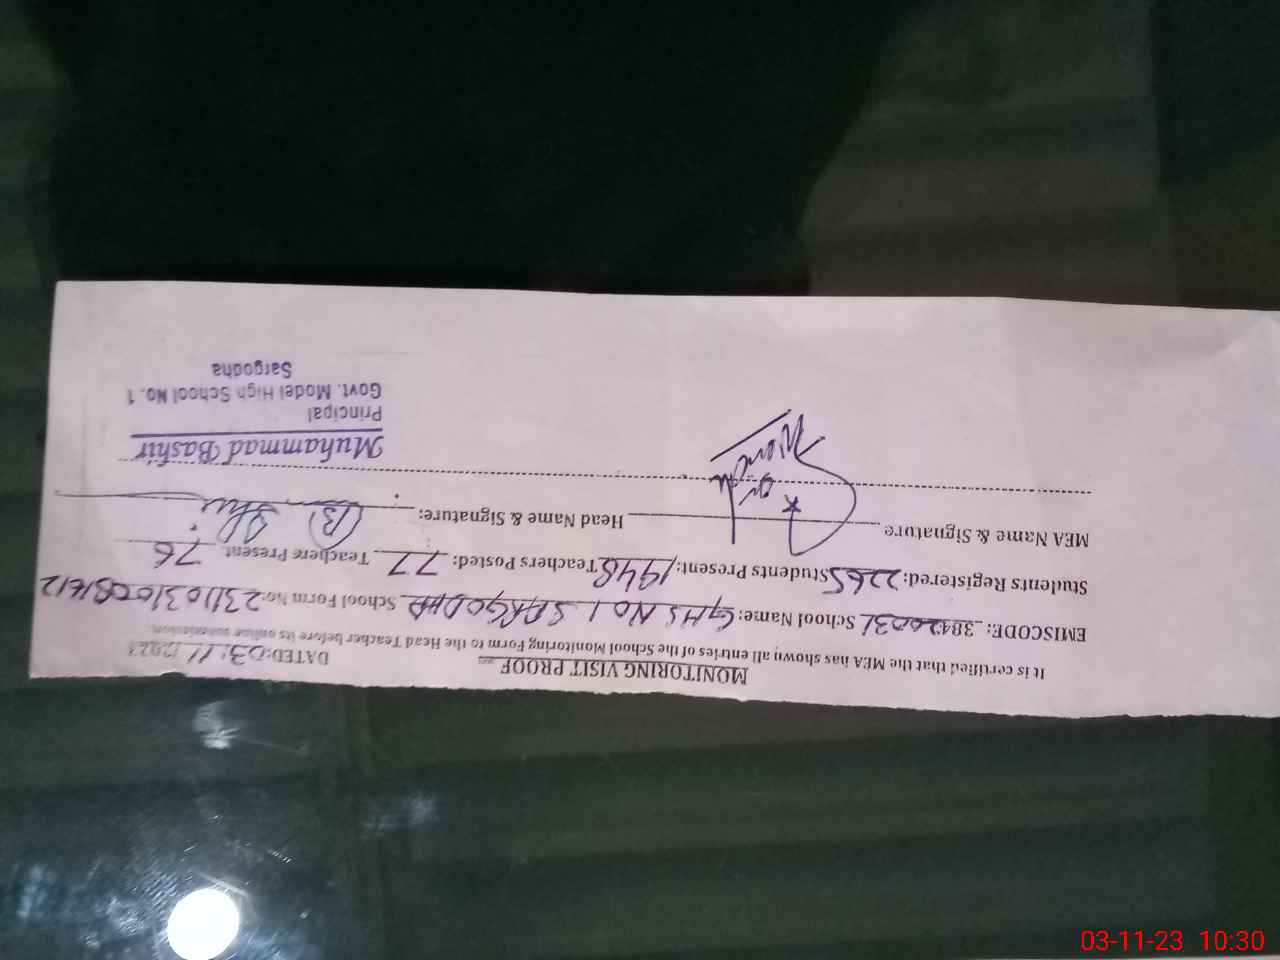 MONITORING VISIT PROOF
DATED: 03/11/2023
It is certified that the MEA has shown all entries of the School Monitoring Form to the Head Teacher before its online submission.
EMISCODE: 38420031 School Name: GHS No 1 SARGODHA School Form No:
Students Registered: 2265 Students Present: 1948 Teachers Posted: 77 Teachers Present 76
MEA Name & Signature Head Name & Signature:
Muhammad Bashir
Principal
Govt. Model High School No. 1
Sargodha
03-11-23 10:30